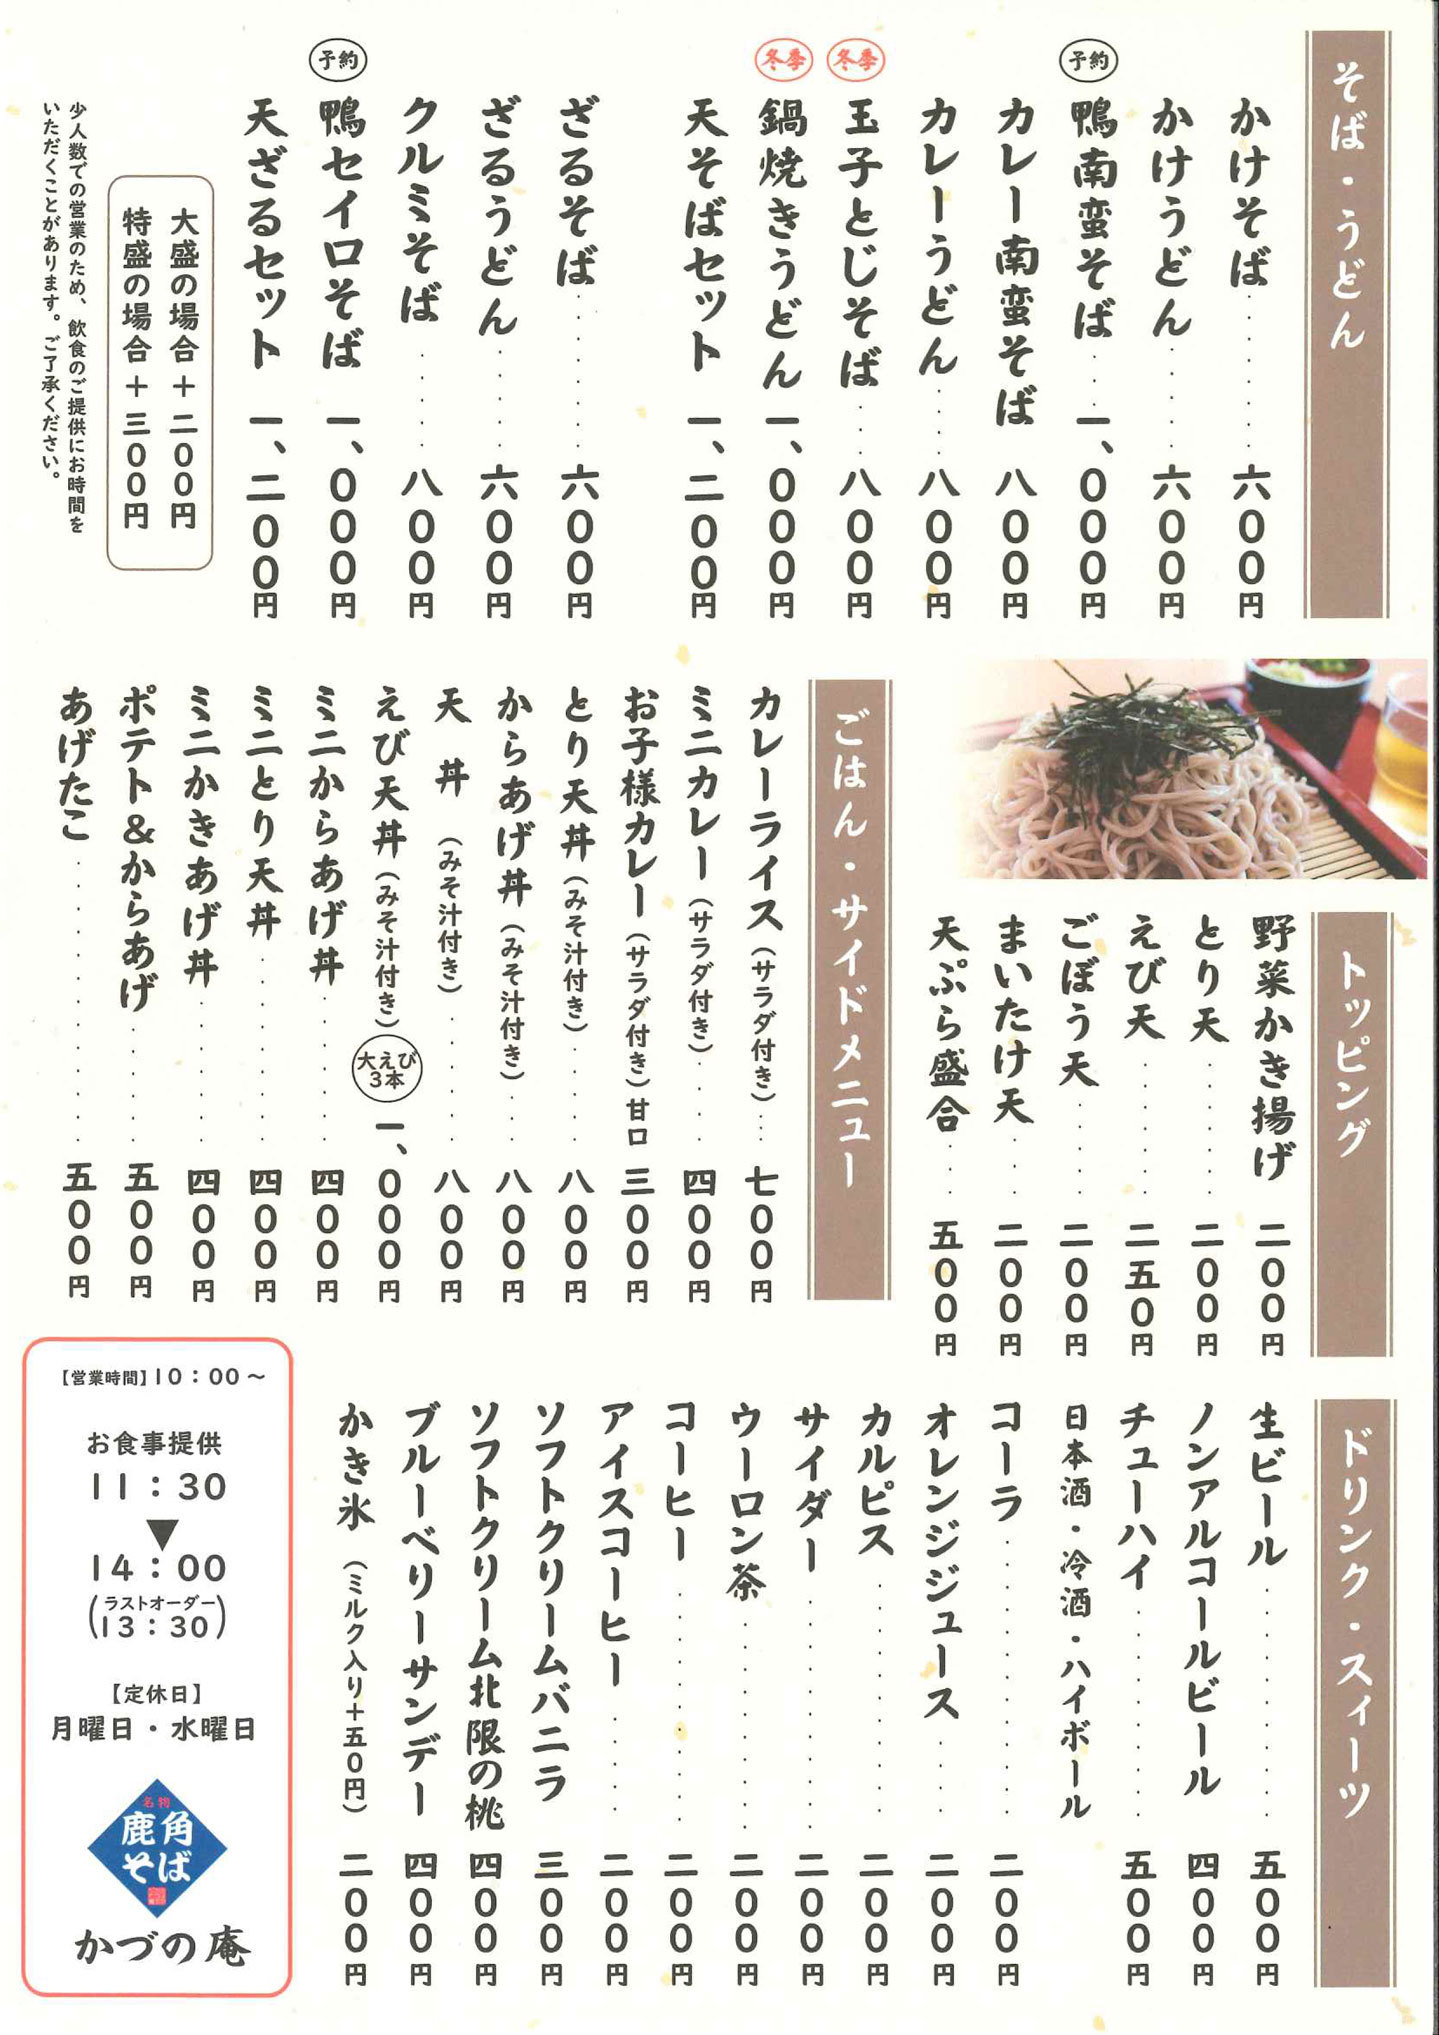 そば・うどん
かけそば 六００円
かけうどん 六００円
予約 鴨南蛮そば 一、０００円
カレー南蛮そば 八００円
カレーうどん 八００円
冬季 玉子とじそば 八００円
冬季 鍋焼きうどん 一、０００円
天そばセット 一、二００円
ざるそば 六００円
ざるうどん 六００円
クルミそば 八００円
予約 鴨セイロそば 一、０００円
天ざるセット 一、二００円
大盛の場合＋二００円
特盛の場合＋三００円
少人数での営業のため、飲食のご提供にお時間を
いただくことがあります。ご了承ください。
トッピング
野菜かき揚げ 二００円
とり天 二００円
えび天 二五０円
ごぼう天 二００円
まいたけ天 二００円
天ぷら盛合 五００円
ごはん・サイドメニュー
カレーライス（サラダ付き） 七００円
ミニカレー（サラダ付き） 四００円
お子様カレー（サラダ付き）甘口 三００円
とり天丼（みそ汁付き） 八００円
からあげ丼（みそ汁付き） 八００円
天丼（みそ汁付き） 八００円
えび天丼（みそ汁付き）大えび3本 一、０００円
ミニからあげ丼 四００円
ミニとり天丼 四００円
ミニかきあげ丼 四００円
ポテト＆からあげ 五００円
あげたこ 五００円
ドリンク・スィーツ
生ビール 五００円
ノンアルコールビール 四００円
チューハイ 五００円
日本酒・冷酒・ハイボール
コーラ 二００円
オレンジジュース 二００円
カルピス 二００円
サイダー 二００円
ウーロン茶 二００円
コーヒー 二００円
アイスコーヒー 二００円
ソフトクリームバニラ 三００円
ソフトクリーム北限の桃 四００円
ブルーベリーサンデー 四００円
かき氷（ミルク入り＋五０円） 二００円
【営業時間】10：00～
お食事提供
11：30
▼
14：00
（ラストオーダー
13：30）
【定休日】
月曜日・水曜日
名物
鹿角
そば
かづの庵